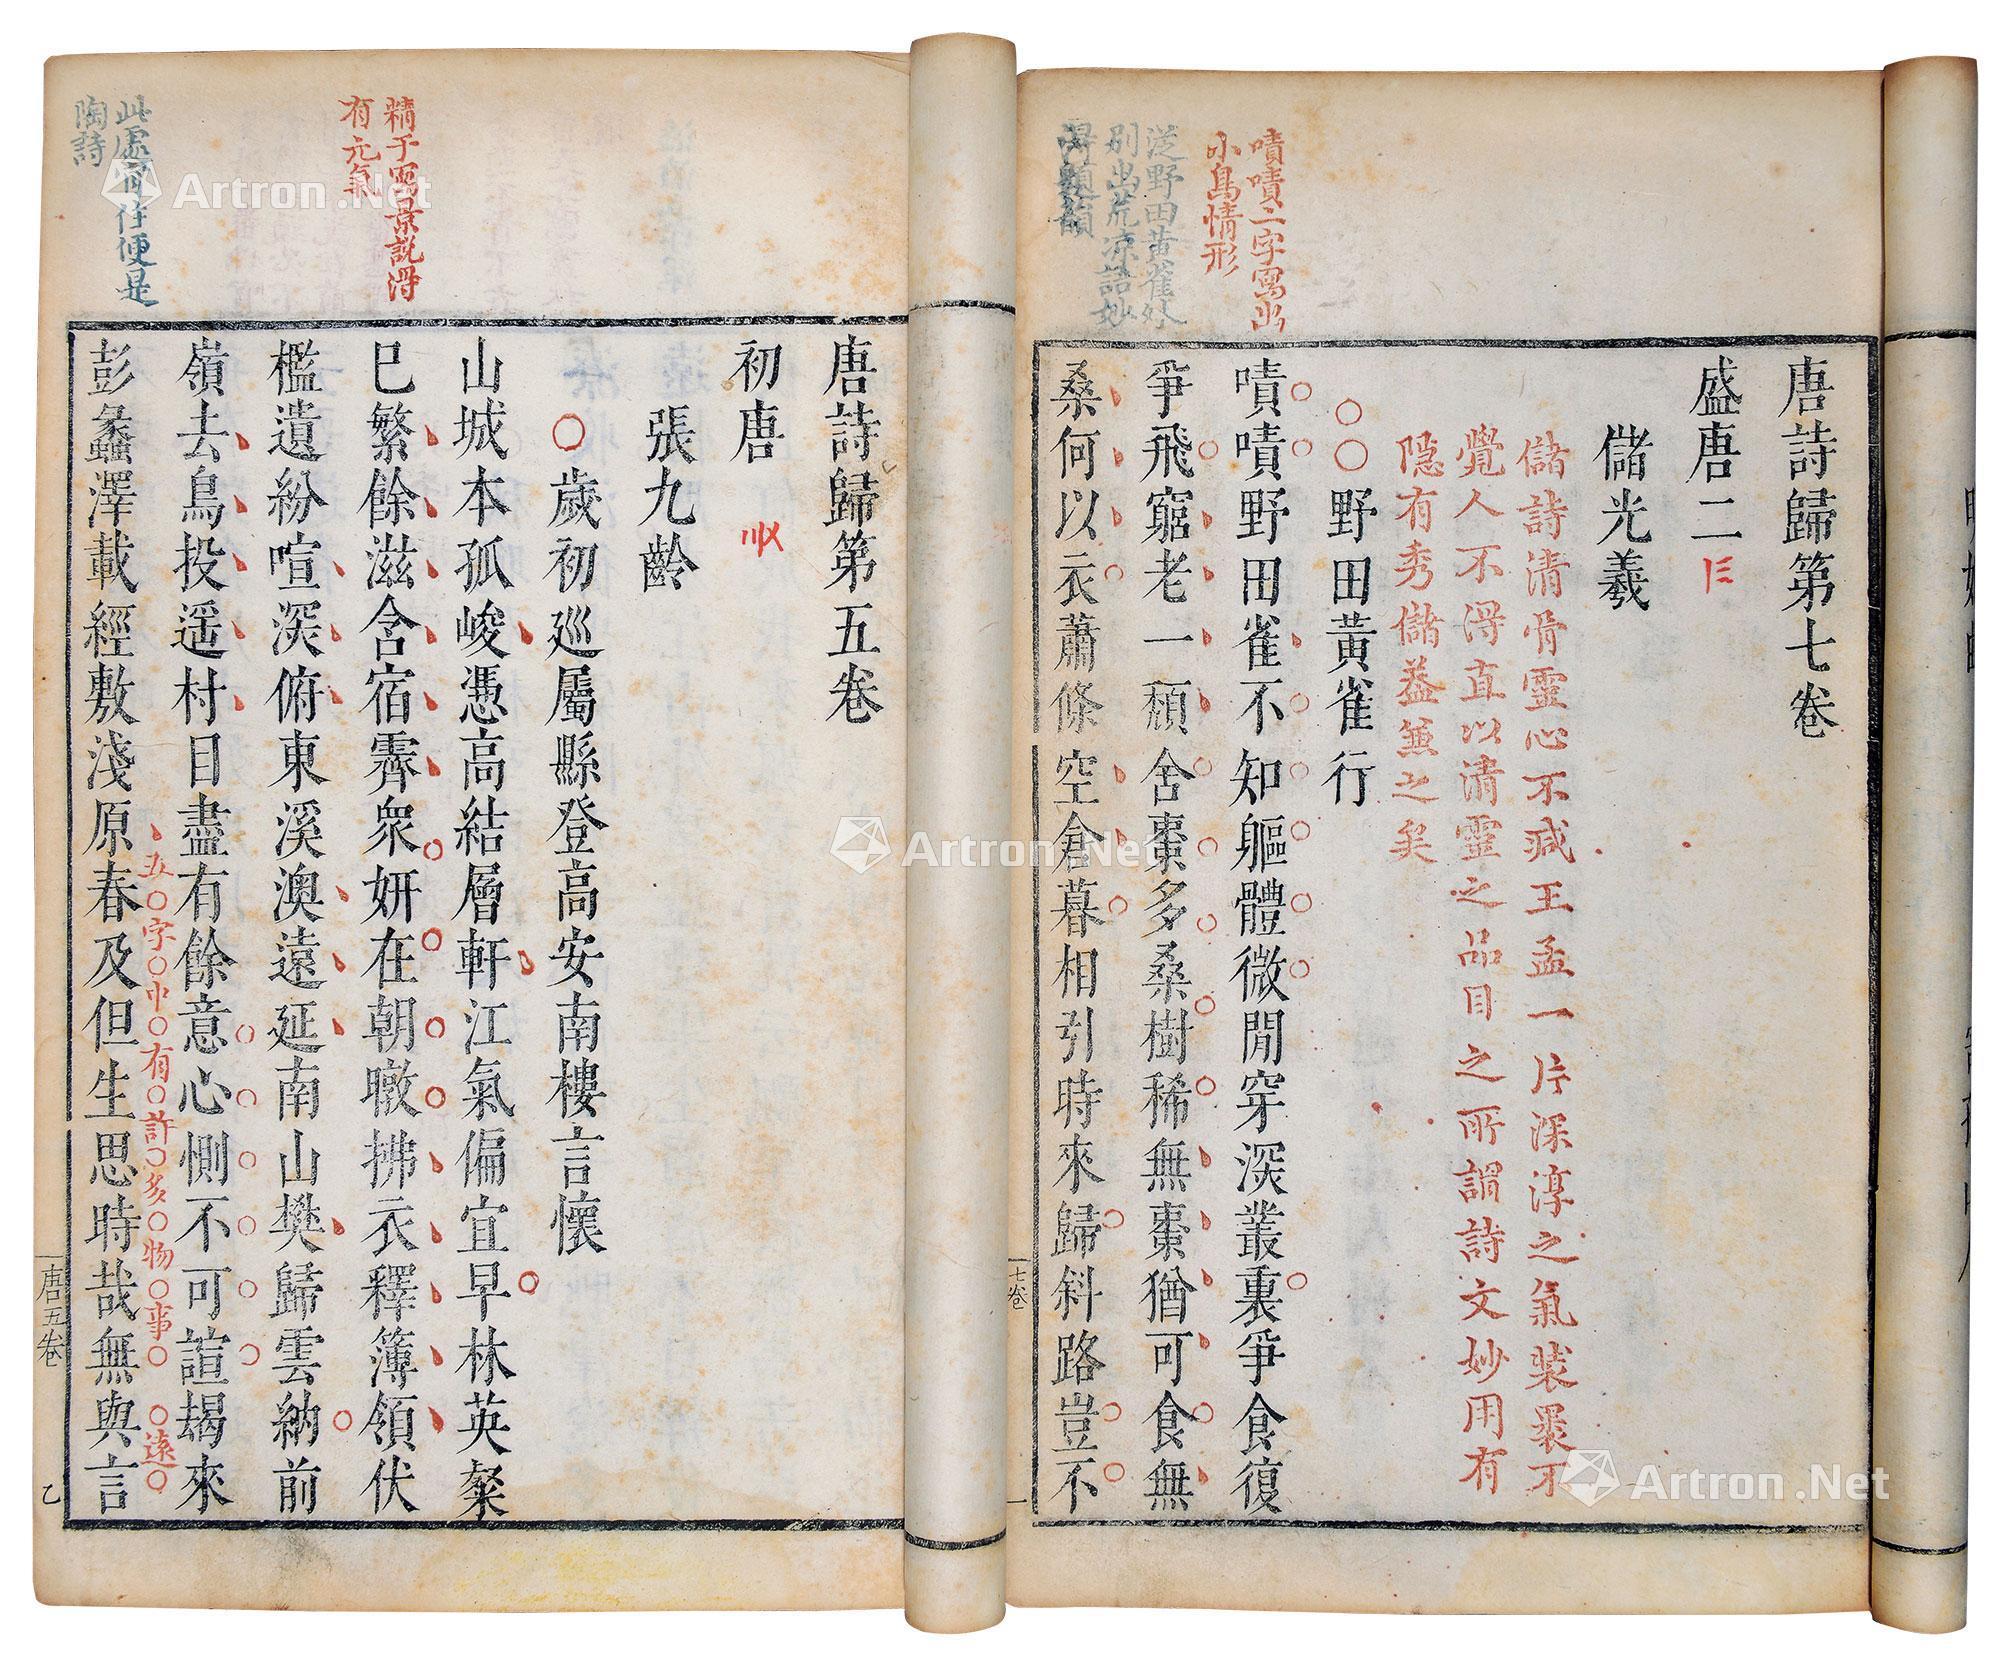 嘖嘖二字寫出
小鳥情形
從野田黃雀妙
別出荒凉語妙
得題韻
唐詩歸第七卷
盛唐二
儲光羲
儲詩清骨靈心不減王孟一片深淳之氣裝裹不
覺人不得直以清靈之品目之所謂詩文妙用有
隱有秀儲益兼之矣
○○野田黃雀行
嘖嘖野田雀不知軀體微閒穿深叢裏爭食復
爭飛窮老一頹舍棗多桑樹稀無棗猶可食無
桑何以衣蕭條空倉暮相引時來歸斜路豈不
七卷
一
精于寫景說得
有元氣
此處何往便是
陶詩
唐詩歸第五卷
初唐
張九齡
○歲初巡屬縣登高安南樓言懷
山城本孤峻憑高結層軒江氣偏宜早林英粲
已繁餘滋含宿霽衆妍在朝暾拂衣釋簿領伏
檻遺紛喧深俯東溪澳遠延南山樊歸雲納前
嶺去鳥投遥村目盡有餘意心惻不可諠朅來
五字中有許多物事 遠
彭蠡澤載經敷淺原春及但生思時哉無與言
唐五卷
乙
Artron.Net
Artron.Net
Artron.Net
Artron.Net